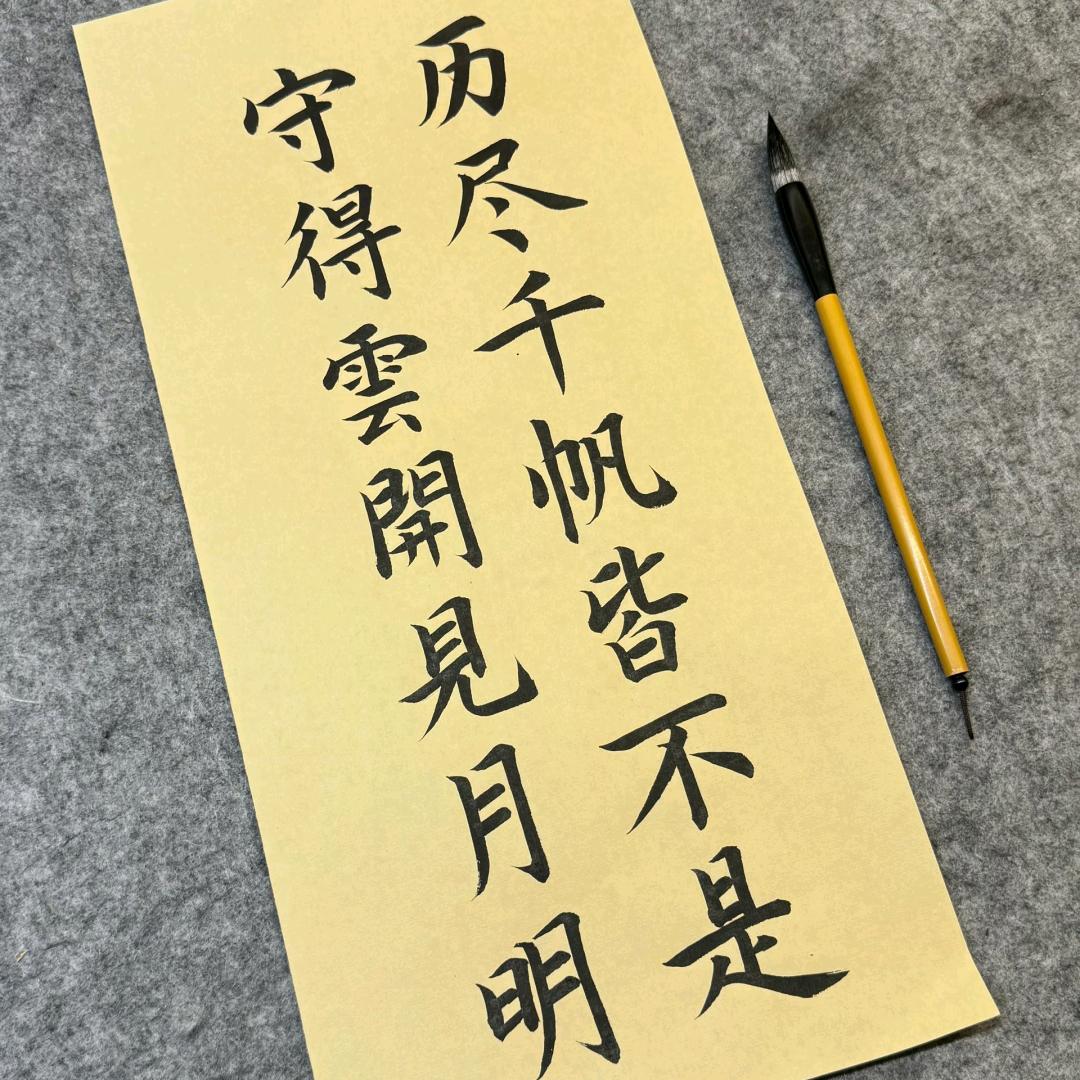 历尽千帆皆不是
守得雲開見月明